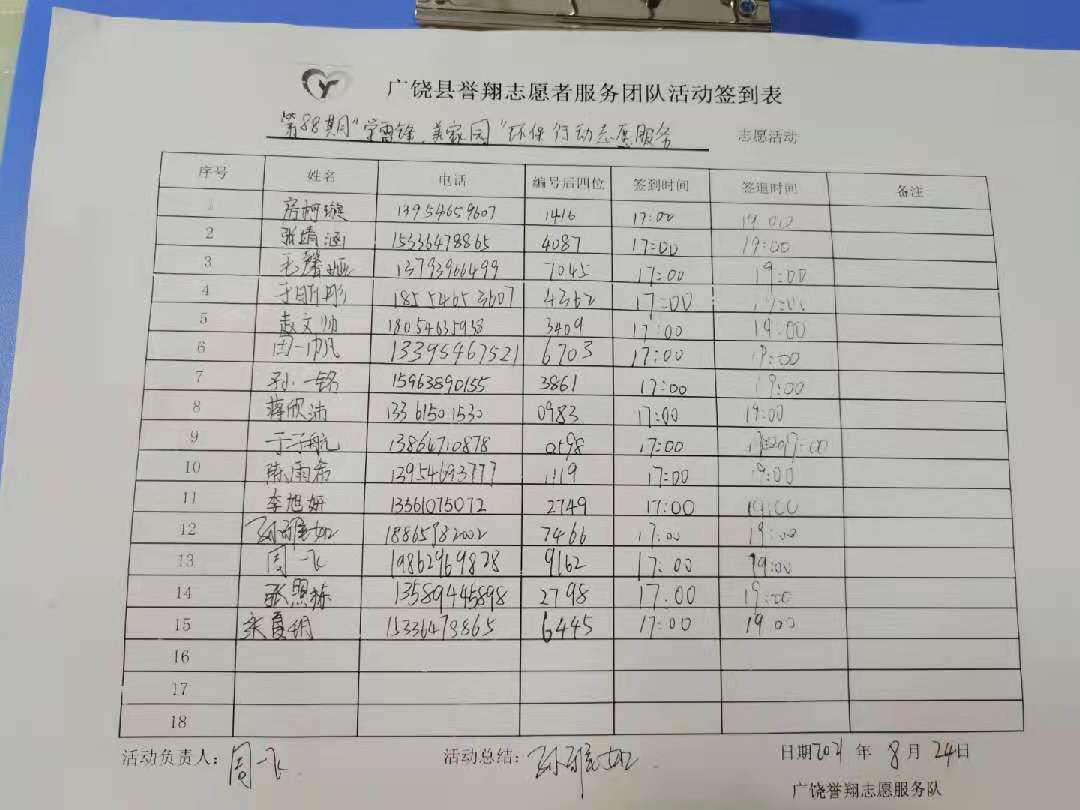 广饶县誉翔志愿者服务团队活动签到表
第88期"学雷锋、美家园"环保行动志愿服务 志愿活动
序号 姓名 电话 编号后四位 签到时间 签退时间 备注
1 房柯璇 13954659607 1416 17:00 19:00
2 张靖涵 15336478865 4087 17:00 19:00
3 毛馨 13793966499 7045 17:00 9:00
4 于昕彤 18554653607 4362 17:00 19:00
5 赵文帅 18054635958 3409 17:00 19:00
6 周一帆 13395467521 6703 17:00 19:00
7 孙一铭 15963890155 3861 17:00 19:00
8 蒋欣沛 13361501530 0983 17:00 19:00
9 于子航 13864710878 0598 17:00 19:00
10 陈雨希 13954693777 1119 17:00 19:00
11 李旭妍 13361075072 2749 17:00 19:00
12 孙雅如 18865782002 7466 17:00 19:00
13 周一飞 19862969828 9162 17:00 19:00
14 张照栋 13589445898 2798 17:00 19:00
15 夏钥 15336473865 6445 17:00 19:00
16
17
18
活动负责人：周一飞 活动总结：孙雅如 日期2021年8月24日
广饶誉翔志愿服务队